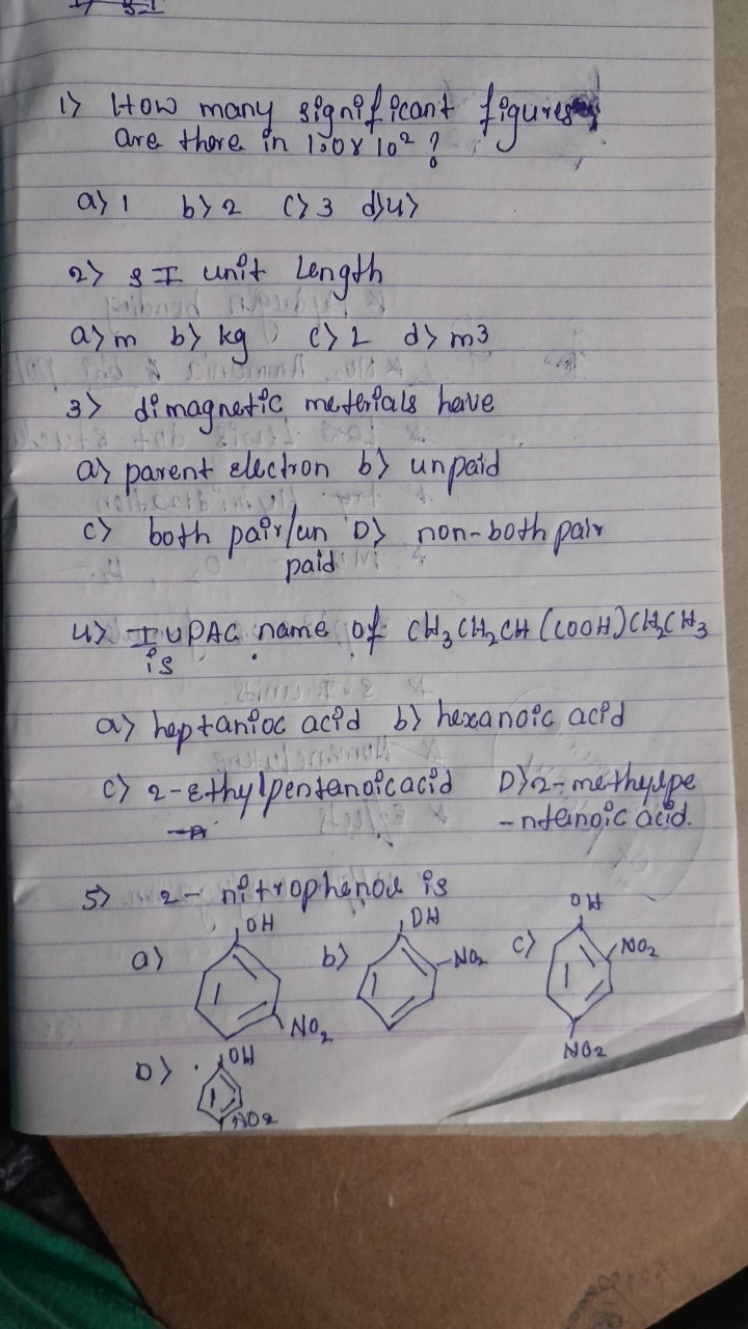 1> How many significant figures
are there in 1.0 x 10² ?
a> 1 b> 2 c> 3 d> 4>
2> SI unit Length
a> m b> kg c> L d> m3
3> dimagnetic meterials heve
a> parent electron b> unpaid
c> both pair/un D> non-both pair
paid
4> IUPAC name of CH₃CH₂CH (COOH)CH₂CH₃
is
a> heptanioc acid b> hexanoic acid
c> 2-Ethylpentanoic acid D> 2-methylpe
-ntanoic acid.
5> 2-nitrophenol is
a> OH NO₂ b> OH NO₂ c> OH NO₂ NO₂
D> OH NO2